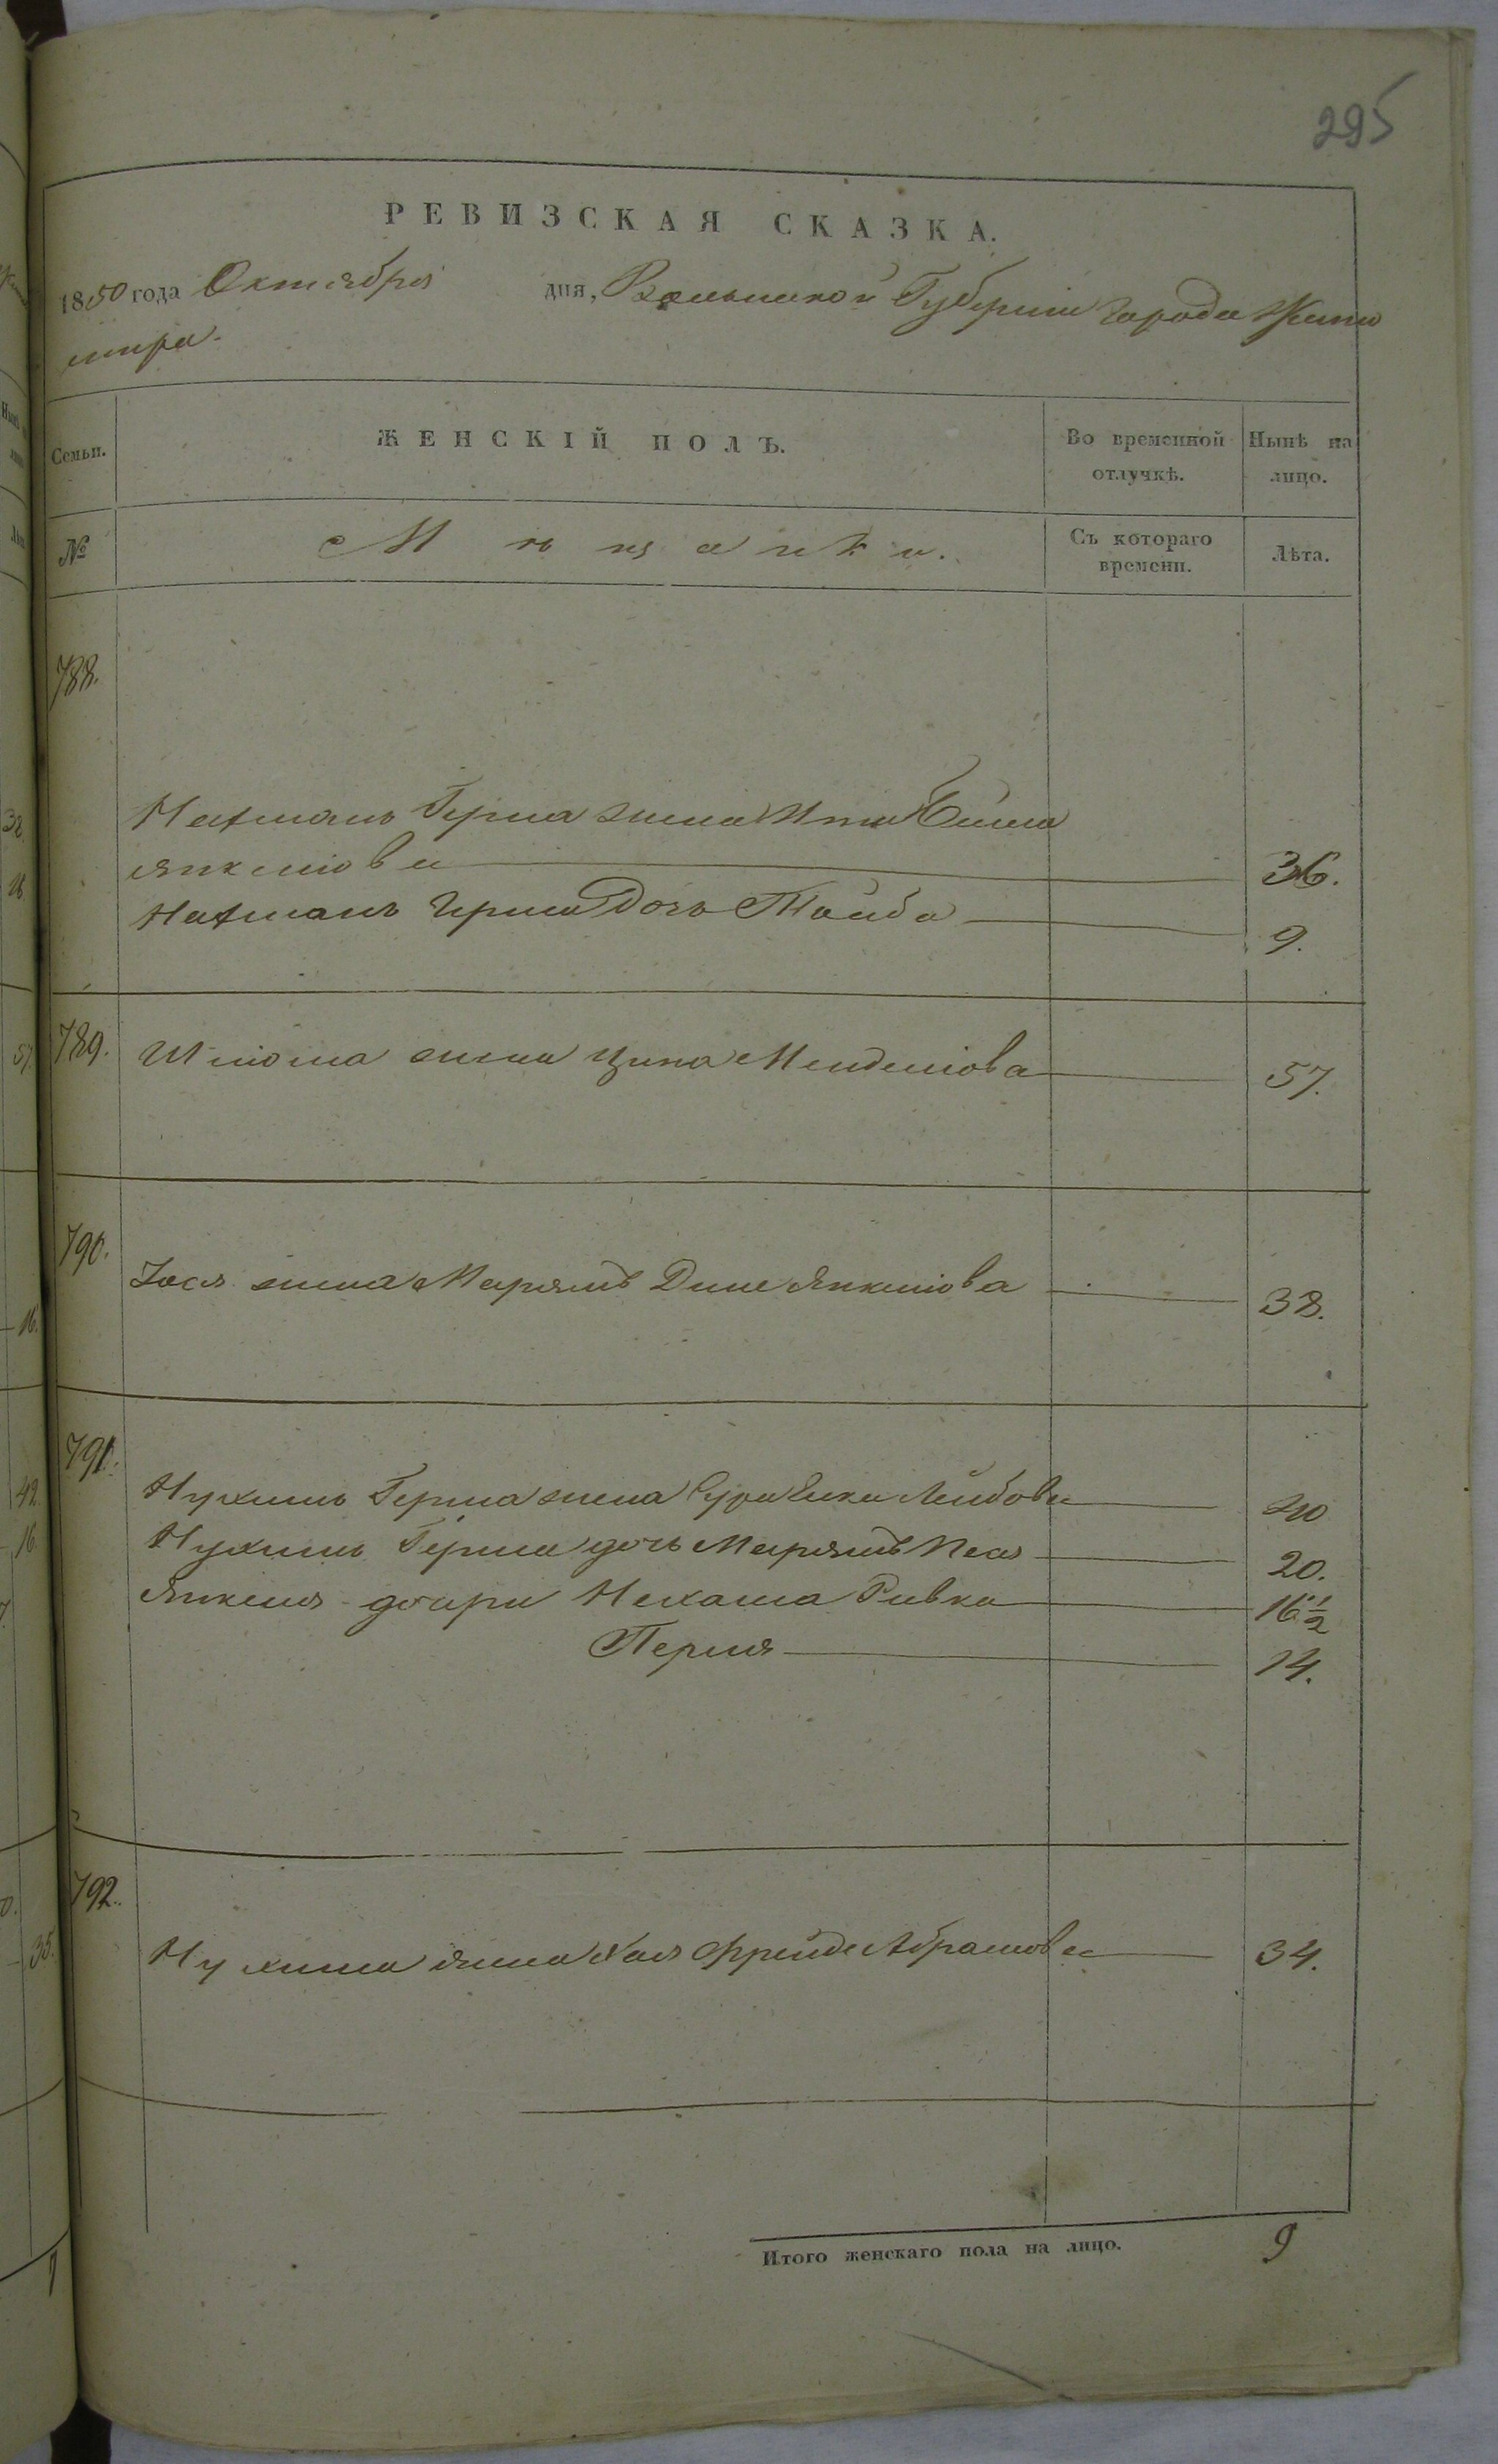 295
РЕВИЗСКАЯ СКАЗКА.
1850 года Октября дня, Волынской Губерніи города Жито
мира.
Семьи. ЖЕНСКІЙ ПОЛЪ. Во временной отлучкѣ. Нынѣ на лицо.
№ Мѣщанки. Съ котораго времени. Лѣта.
788.
Нахманъ Герша жена Бейла
Янкелiова 36.
Нахманъ Герша дочь Тайба 9.
789. Шлiома жена Ципа Менделiова 57.
790.
Iося жена Марьямъ Дине Янкелiова 38.
791.
Нухимъ Герша жена Лейбова 40
Нухимъ Герша дочь Марьямъ Песя 20.
Янкеля дочери Нехама Ривка 16 1/2
Перля 14.
792.
Нухима жена Хая Фрейде Абрамова 34.
Итого женскаго пола на лицо. 9